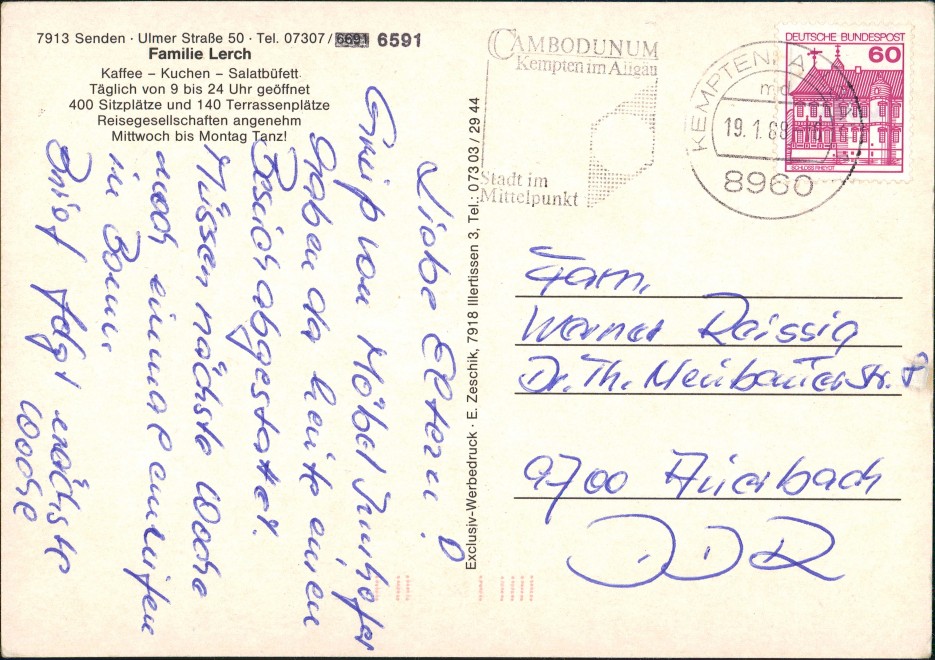 7913 Senden · Ulmer Straße 50 · Tel. 07307/ 6691 6591
Familie Lerch
Kaffee – Kuchen – Salatbüfett
Täglich von 9 bis 24 Uhr geöffnet
400 Sitzplätze und 140 Terrassenplätze
Reisegesellschaften angenehm
Mittwoch bis Montag Tanz!
Liebe Eltern!
Gruß von Möbel Inhofer
haben da heute einen
Besuch abgestattet.
Müssen nächste Woche
noch einmal anrufen
in Bonn.
Brief folgt nächste
Woche
Exclusiv-Werbedruck · E. Zeschik, 7918 Illertissen 3, Tel.: 073 03 / 29 44
CAMBODUNUM
Kempten im Allgäu
Stadt im
Mittelpunkt
KEMPTEN, A
md
19.1.89
8960
DEUTSCHE BUNDESPOST
60
SCHLOSS RHEYDT
Fam.
Werner Reissig
Dr. Th. Neubauerstr. 8
9700 Auerbach
DDR